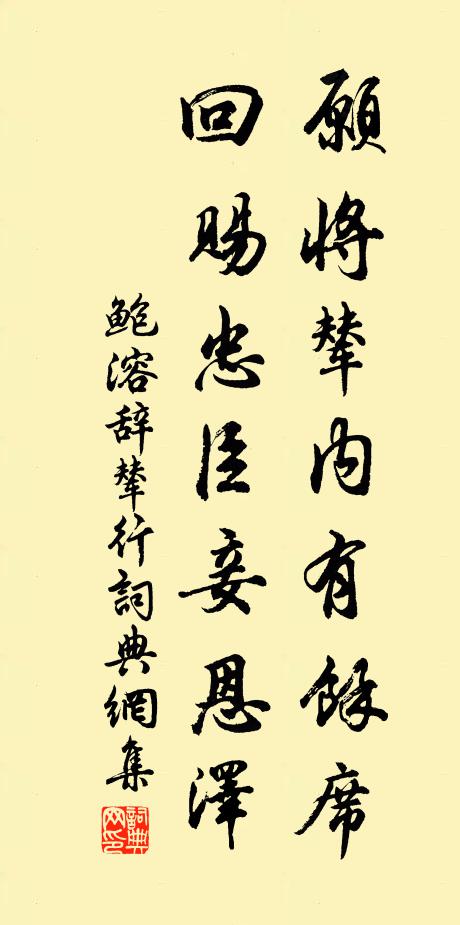 願將輦內有餘席
回賜忠臣妾恩澤
鮑溶辭輦行詞典網集
詞典網印